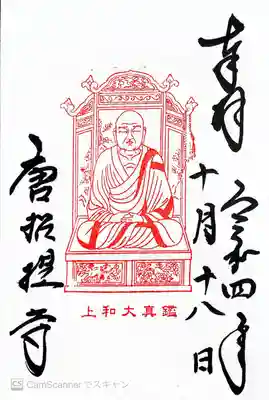 奉拝
令和四年
十月十八日
鑑真大和上
唐招提寺
CS CamScanner でスキャン